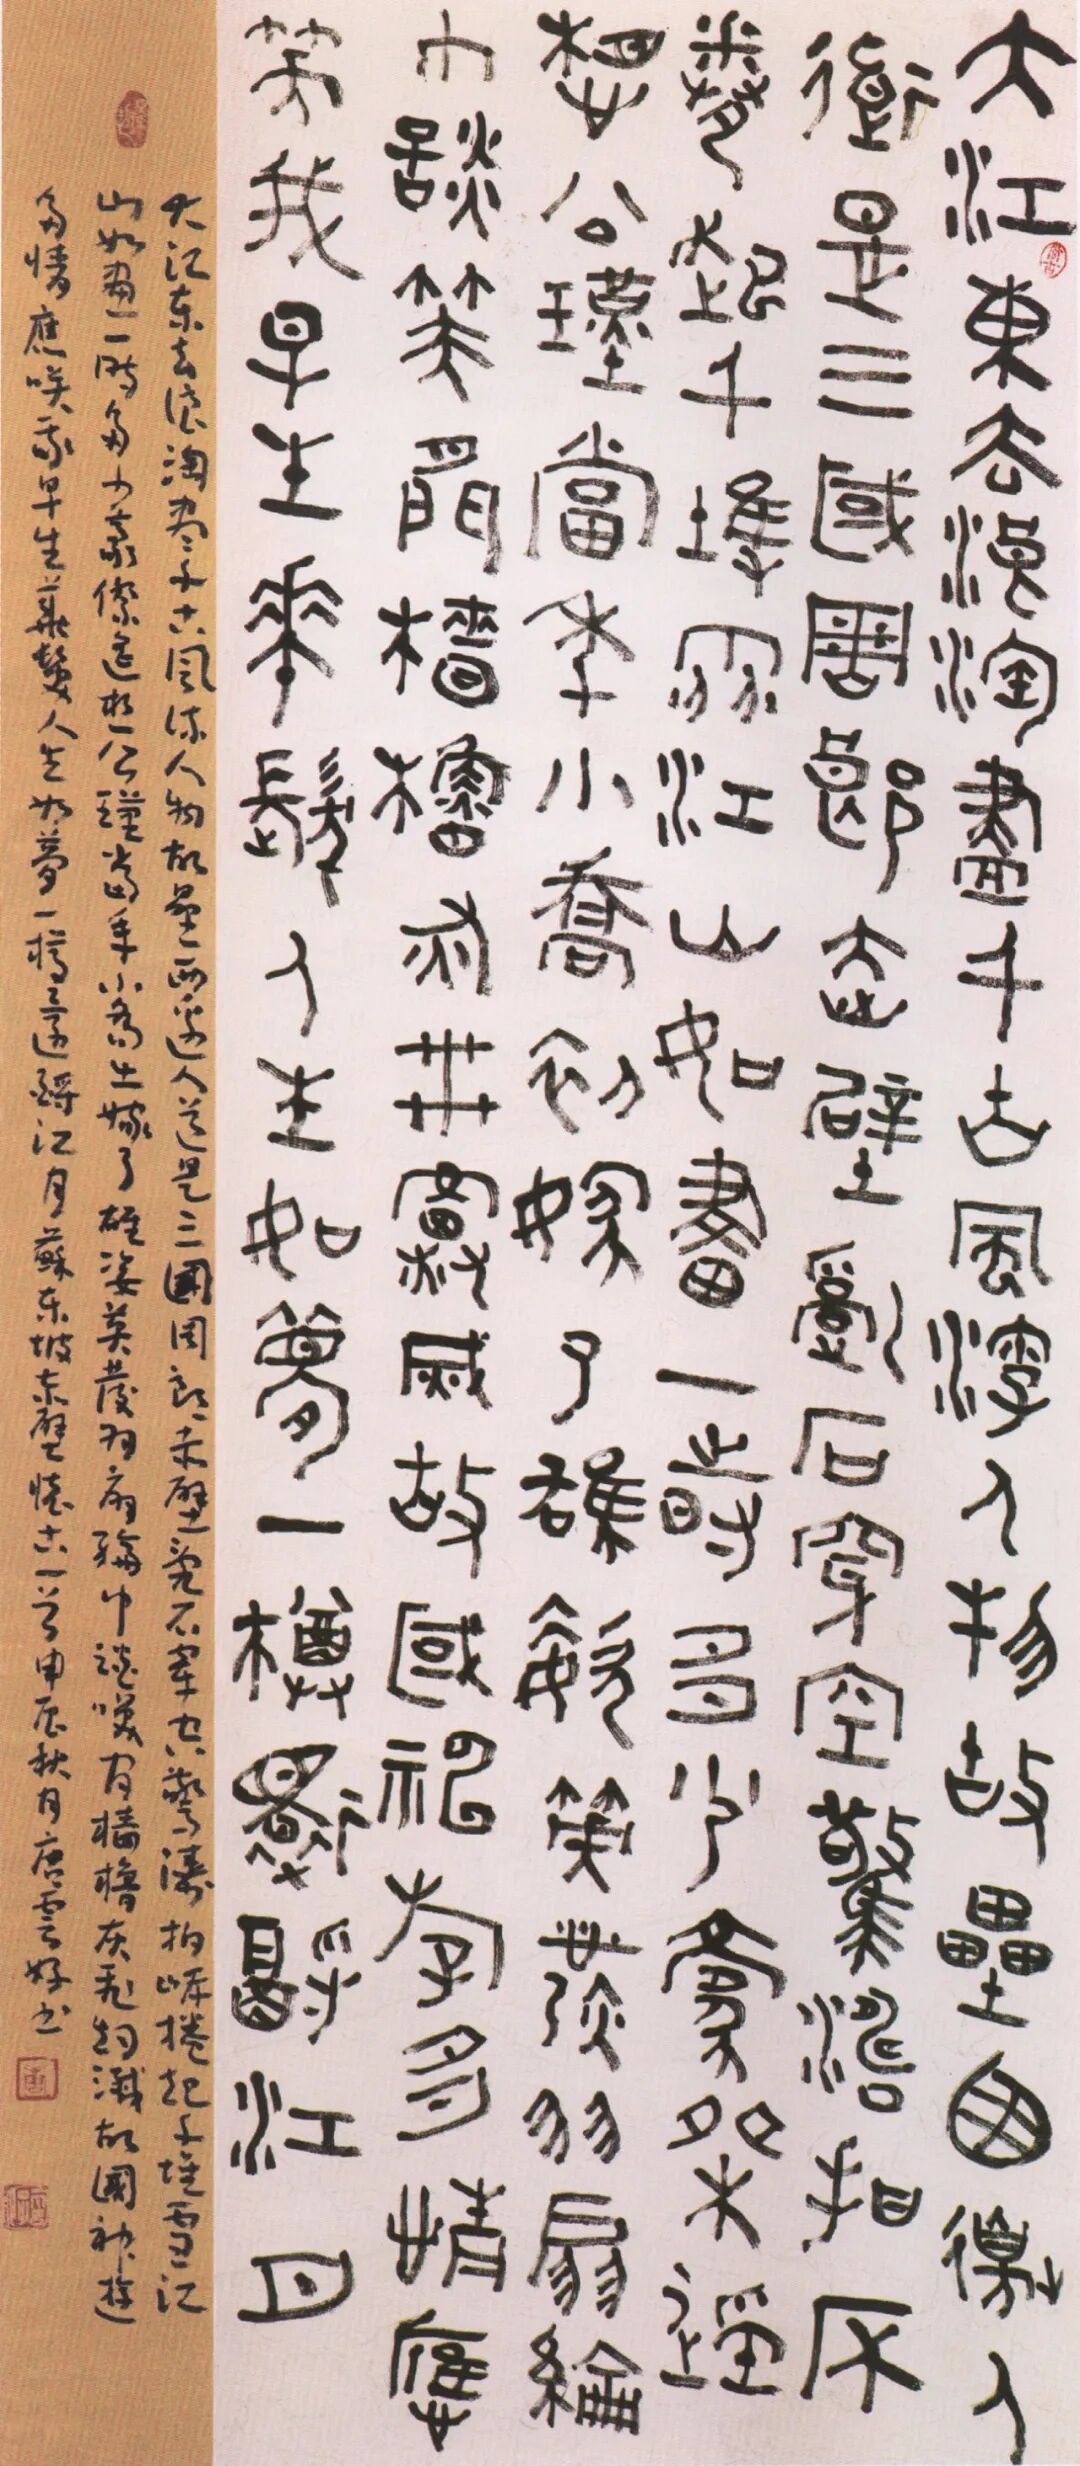 大江東去浪淘盡千古風流人物故壘西邊人
道是三國周郎赤壁亂石穿空驚濤拍岸
捲起千堆雪江山如畫一時多少豪傑遙
想公瑾當年小喬初嫁了雄姿英發羽扇綸
巾談笑間檣櫓灰飛煙滅故國神游多情應
笑我早生華髮人生如夢一樽還酹江月
大江东去浪淘尽千古風流人物故壘西邊人道是三國周郎赤壁亂石穿空驚濤拍岸捲起千堆雪江
山如畫一時多少豪傑遙想公瑾當年小喬出嫁了雄姿英發羽扇綸巾談笑間檣櫓灰飛烟滅故國神遊
多情應笑我早生華髮人生如夢一樽還酹江月蘇东坡赤壁懷古一首甲辰秋月唐雲好书